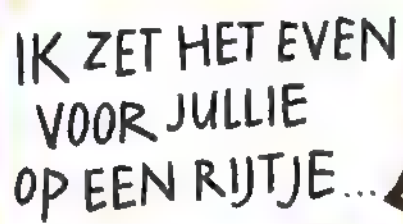 IK ZET HET EVEN
VOOR JULLIE
OP EEN RIJTJE...